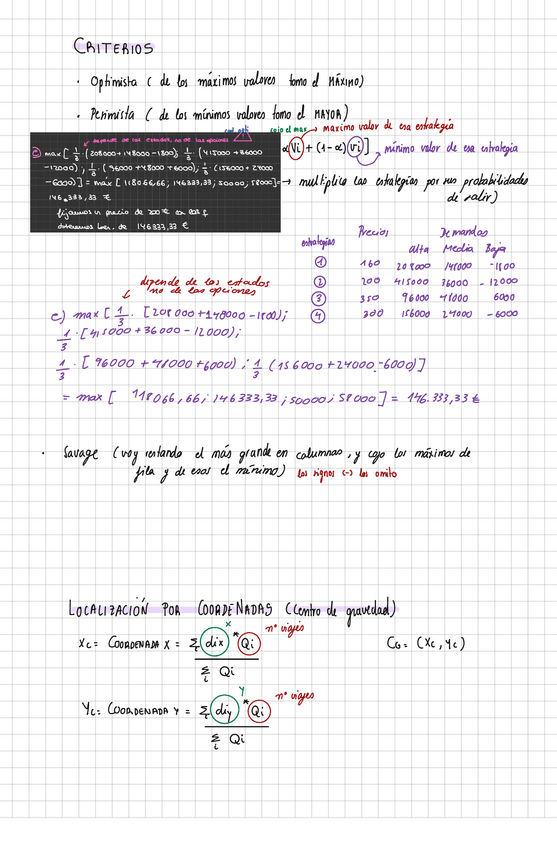 CRITERIOS
· Optimista ( de los máximos valores tomo el MÁXIMO)
· Pesimista ( de los mínimos valores tomo el MAYOR)
cojo el max → maximo valor de esa estrategia
depende de los estados, no de las opciones
αVi + (1-α)(vi)] → mínimo valor de esa estrategia
e) max [ 1/3 · (208000+148000-1800); 1/3 · (415000+36000
-12000); 1/3 · (96000+48000+6000); 1/3 · (156000+24000
-6000)] = max [118066,66; 146333,33; 50000; 58000] =
146.333,33 €
fijamos un precio de 200 €
146333,33 €
→ multiplico las estrategias por sus probabilidades
de salir)
estrategias Precios Demandas
alta Media Baja
① 160 208000 148000 -1800
② 200 415000 36000 -12000
③ 350 96000 48000 6000
④ 300 156000 24000 -6000
depende de los estados
no de las opciones
e) max [ 1/3 · [208000+148000-1800);
1/3 · [415000+36000-12000);
1/3 · [96000+48000+6000) ; 1/3 (156000+24000-6000)]
= max [ 118066,66; 146333,33; 50000; 58000] = 146.333,33 €
· Savage (voy restando el más grande en columnas, y cojo los máximos de
fila y de esos el mínimo) los signos (-) los omito
LOCALIZACIÓN POR COORDENADAS (Centro de gravedad)
x nº viajes
Xc = COORDENADA X = Σi dix * Qi CG = (Xc, Yc)
Σi Qi
y nº viajes
Yc = COORDENADA Y = Σi diy * Qi
Σi Qi